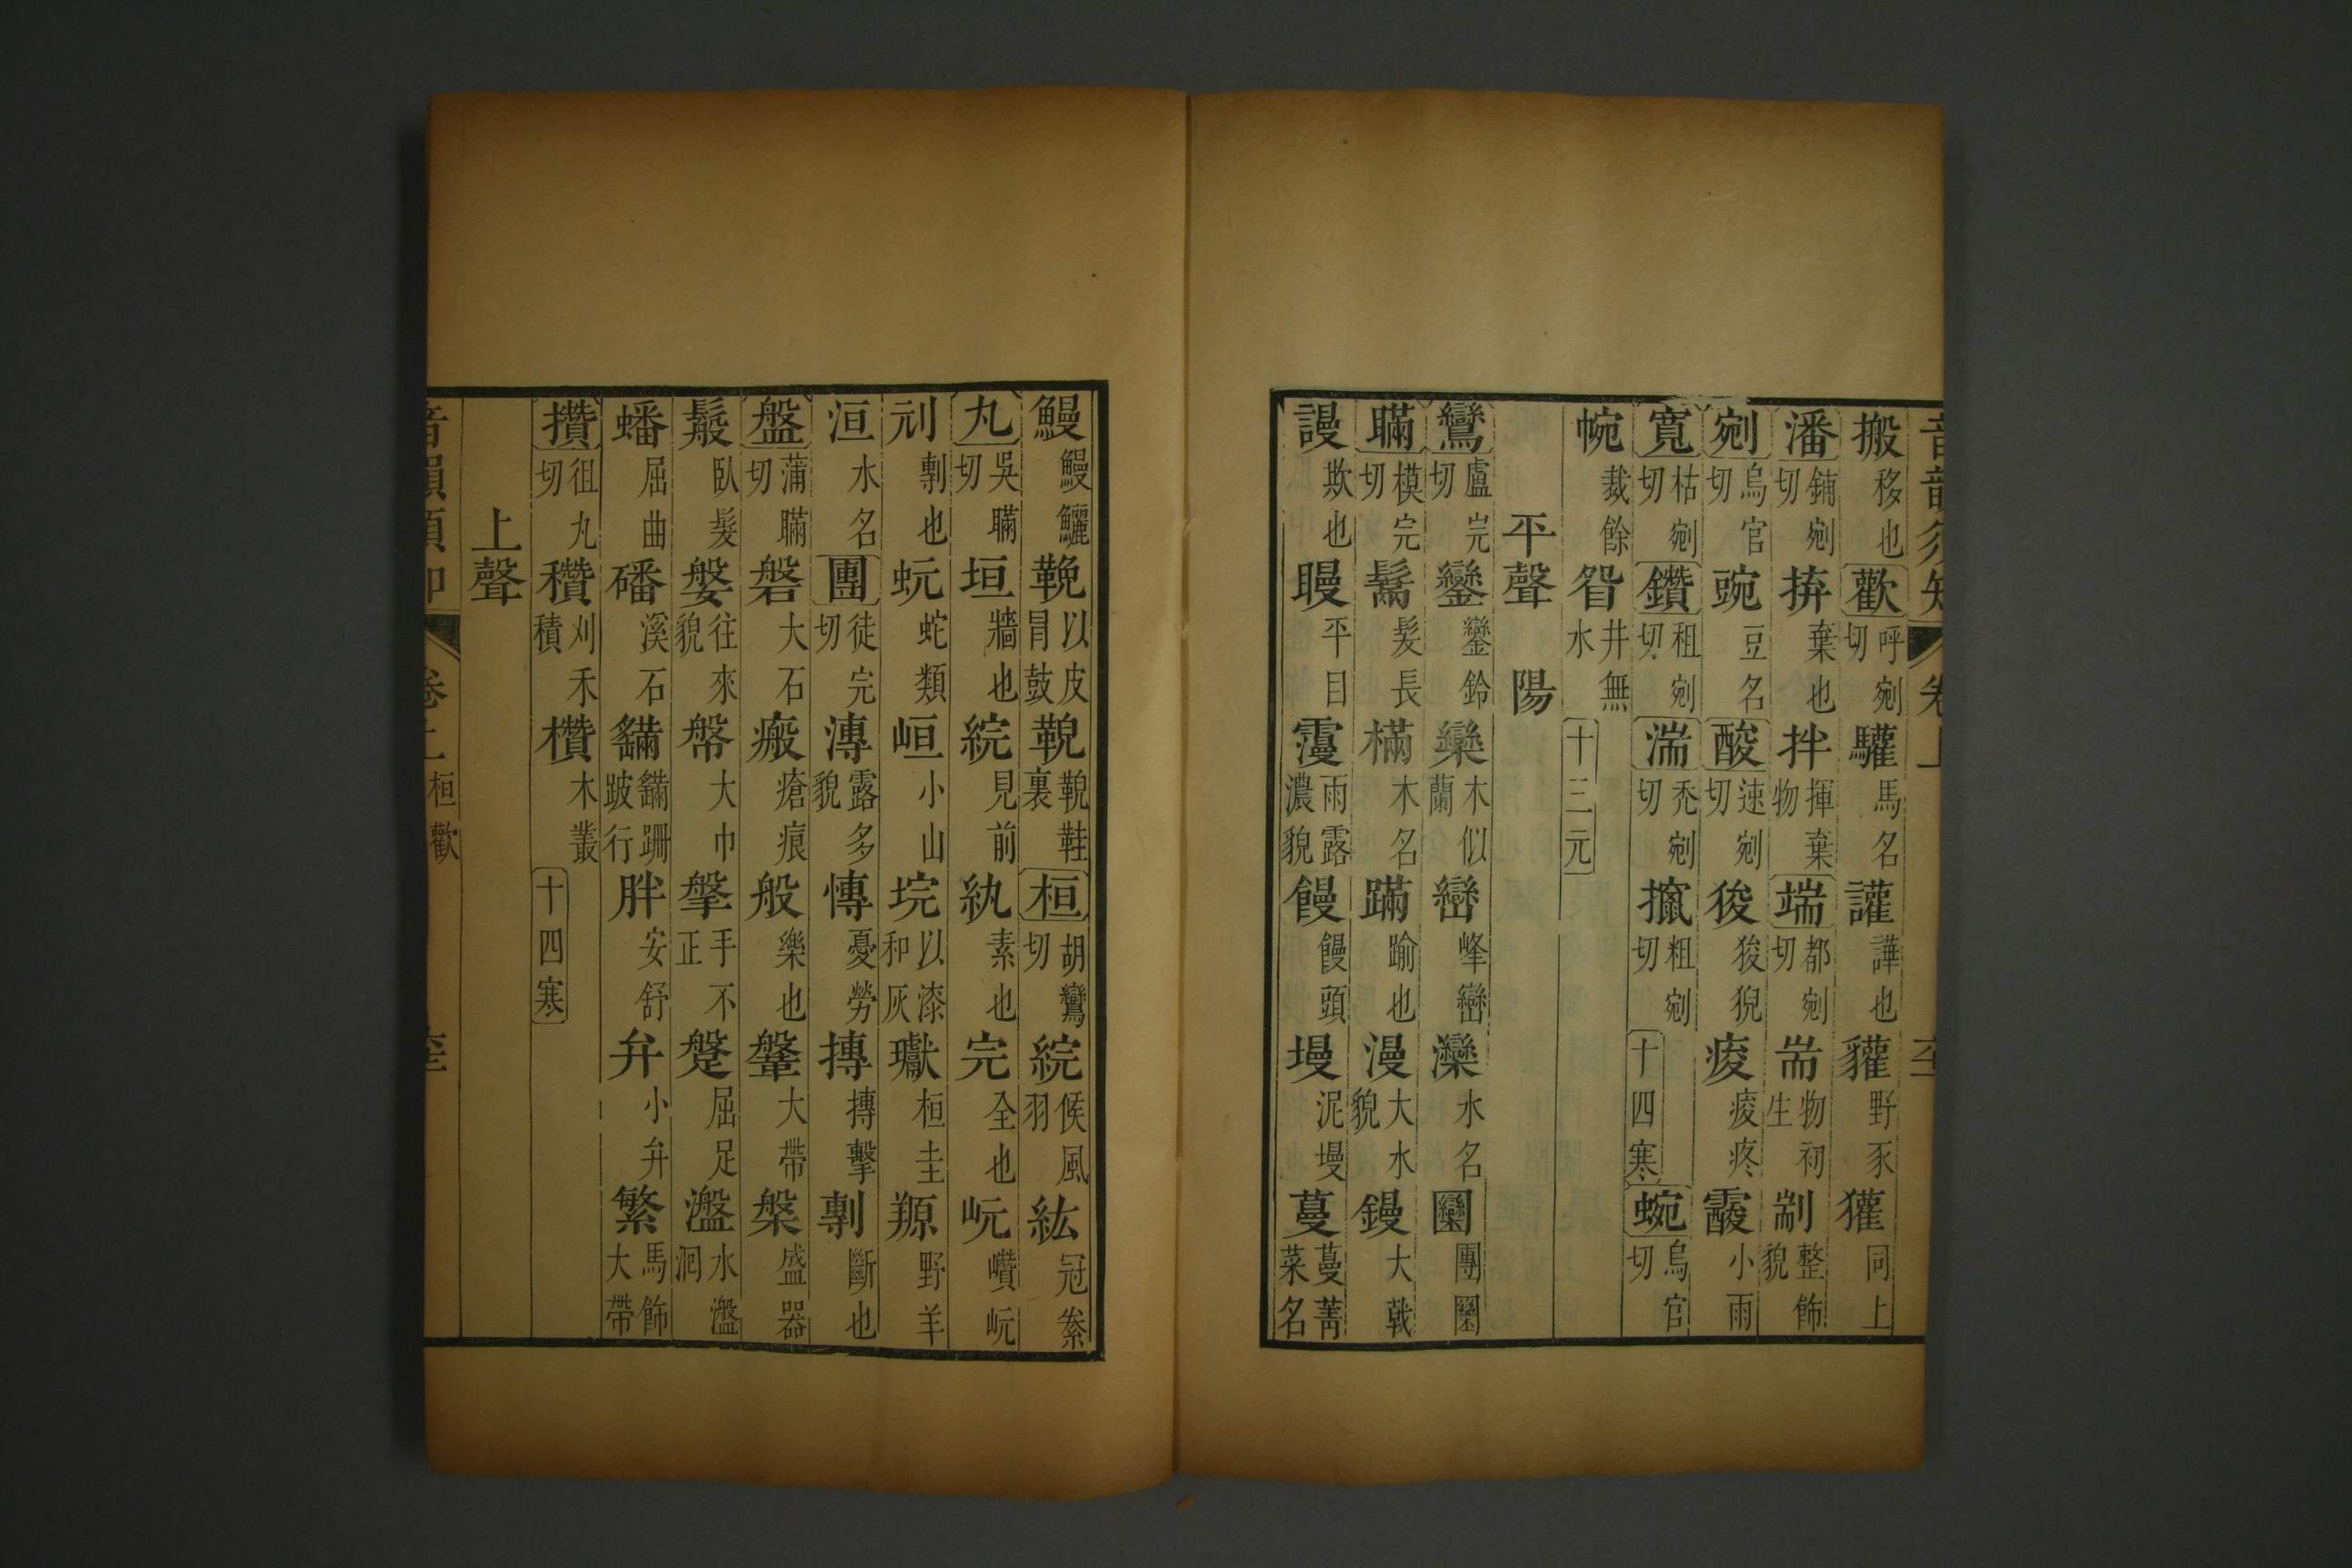 音韻須知 卷上
搬移也歡呼剜切驩馬名讙譁也貛野豕獾同上
潘鋪剜切拚棄也拌揮棄物端都剜切耑物初生剬整飾貌
剜烏官切豌豆名酸速剜切狻狻猊痠痠疼霰小雨
寬枯剜切鑽租剜切湍禿剜切攛粗剜切十四寒蜿烏官切
帵裁餘眢井無水十三元
平聲 陽
鸞盧完切鑾鑾鈴欒木似蘭巒峰巒灤水名圞團圞
瞞模完切鬗髮長樠木名蹣踰也漫大水貌鏝大戟
謾欺也䁂平目𩅍雨露濃貌饅饅頭墁泥墁蔓蔓菁菜名
鰻鰻鱺鞔以皮冒鼓鞔鞋裏桓胡鸞切綄候風羽紘冠絭
丸吳瞞切垣牆也綻見前紈素也完全也岏巑岏
刓剸也蚖蛇類峘小山垸以漆和灰瓛桓圭羱野羊
洹水名團徒完切漙露多貌慱憂勞摶摶擊剸斷也
盤蒲瞞切磐大石瘢瘡痕般樂也鞶大帶槃盛器
鬆臥髮媻往來貌幋大巾搫手不正蹩屈足瀊水洄瀊
蟠屈曲磻溪石蹣蹣跚跛行胖安舒弁小弁繁馬飾大帶
攢徂丸切穳刈禾積欑木叢十四寒
上聲
音韻須知 卷上 桓歡